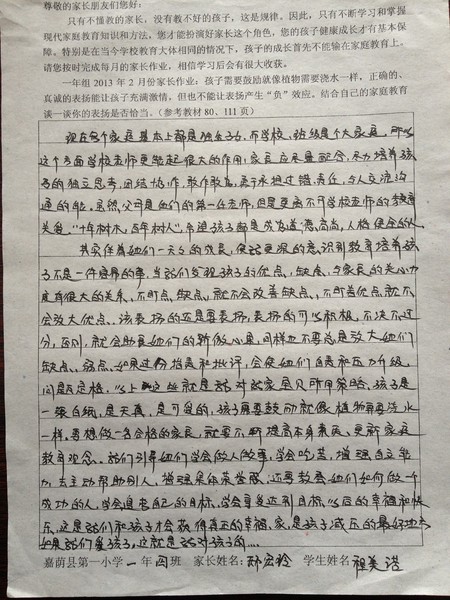 尊敬的家长朋友们您好:
只有不懂教的家长,没有教不好的孩子,这是规律。因此,只有不断学习和掌握
现代家庭教育知识和方法,您才能扮演好家长这个角色,您的孩子健康成长才有基本保
障。特别是在当今学校教育大体相同的情况下,孩子的成长首先不能输在家庭教育上。
请您按时完成每月的家长作业,相信学习后会有很大收获。
一年组 2013 年 2 月份家长作业:孩子需要鼓励就像植物需要浇水一样,正确的、
真诚的表扬能让孩子充满激情,但也不能让表扬产生“负”效应。结合自己的家庭教育
谈一谈你的表扬是否恰当。(参考教材 80、111 页)
现在每个家庭基本上都是独生子,而学校、班级是个大家庭,所以
这个方面学校老师更能起很大的作用;家庭应尽量配合,尽力培养孩
子的独立思考,团结协作,敢作敢当,勇于承担过错、责任,与人交流沟
通的能。虽然父母是他们的第一任老师,但是更离不开学校老师的教育
关爱。“十年树木,百年树人”,希望孩子都是成为道德高尚,人格健全的人。
其实伴着她们一天天的成长,使我更深的意识到教育培养孩
子不是一件容易的事,当我们发现孩子的优点,缺点,与家长的关心力
度有很大的关系,不盯点,缺点,就不会改善缺点,不盯着优点就不
会放大优点。该表扬的还是要表扬,表扬的可以积极,不决不过
分,否则,就会助长她们的骄傲心里,同样也不要总是放大她们
缺点、弱点。如果过份指责和批评,会使她们自责和压力升级,
问题定格。以上就是我对我家宝贝所用策略,孩子是
一张白纸,是天真,是可爱的,孩子需要鼓励就像植物需要浇水
一样。要想做一名合格的家长,就要不断提高本身素质、更新家庭
教育观念。我们引导她们学会做人做事,学会吃苦,增强自立能
力,去主动帮助别人,增强集体荣誉感。还要教会她们如何做一个
成功的人,学会追求自己的目标,学会享受达到目标以后的幸福和快
乐,这是我们和孩子才会获得真正的幸福,家,是孩子减压的最好地方
如果我们爱孩子,这就是我对孩子的....
嘉荫县第一小学 一 年 四 班 家长姓名: 郝宏玲 学生姓名 程美诺